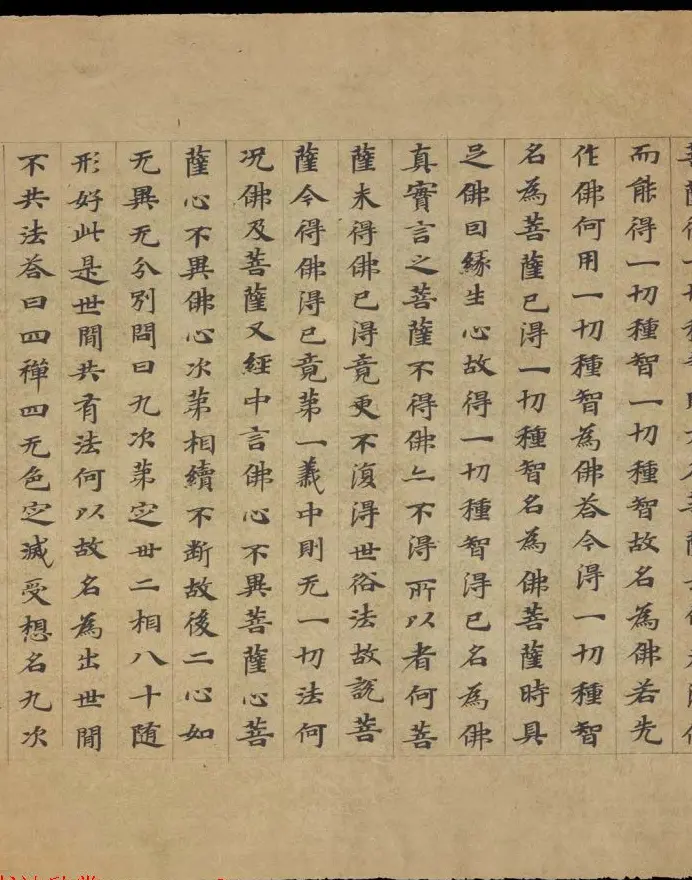 而能得一切種智一切種智故名為佛若先
作佛何用一切種智為佛荅今得一切種智
名為菩薩已得一切種智名為佛菩薩時具
足佛因緣生心故得一切種智得已名為佛
真實言之菩薩不得佛亦不得所以者何菩
薩未得佛已得竟更不復得世俗法故說菩
薩今得佛得已竟苐一義中則无一切法何
况佛及菩薩又經中言佛心不異菩薩心菩
薩心不異佛心次苐相續不断故後二心如
无異无分別問曰九次苐定丗二相八十随
形好此是世間共有法何以故名為出世間
不共法荅曰四禪四无色定滅受想名九次